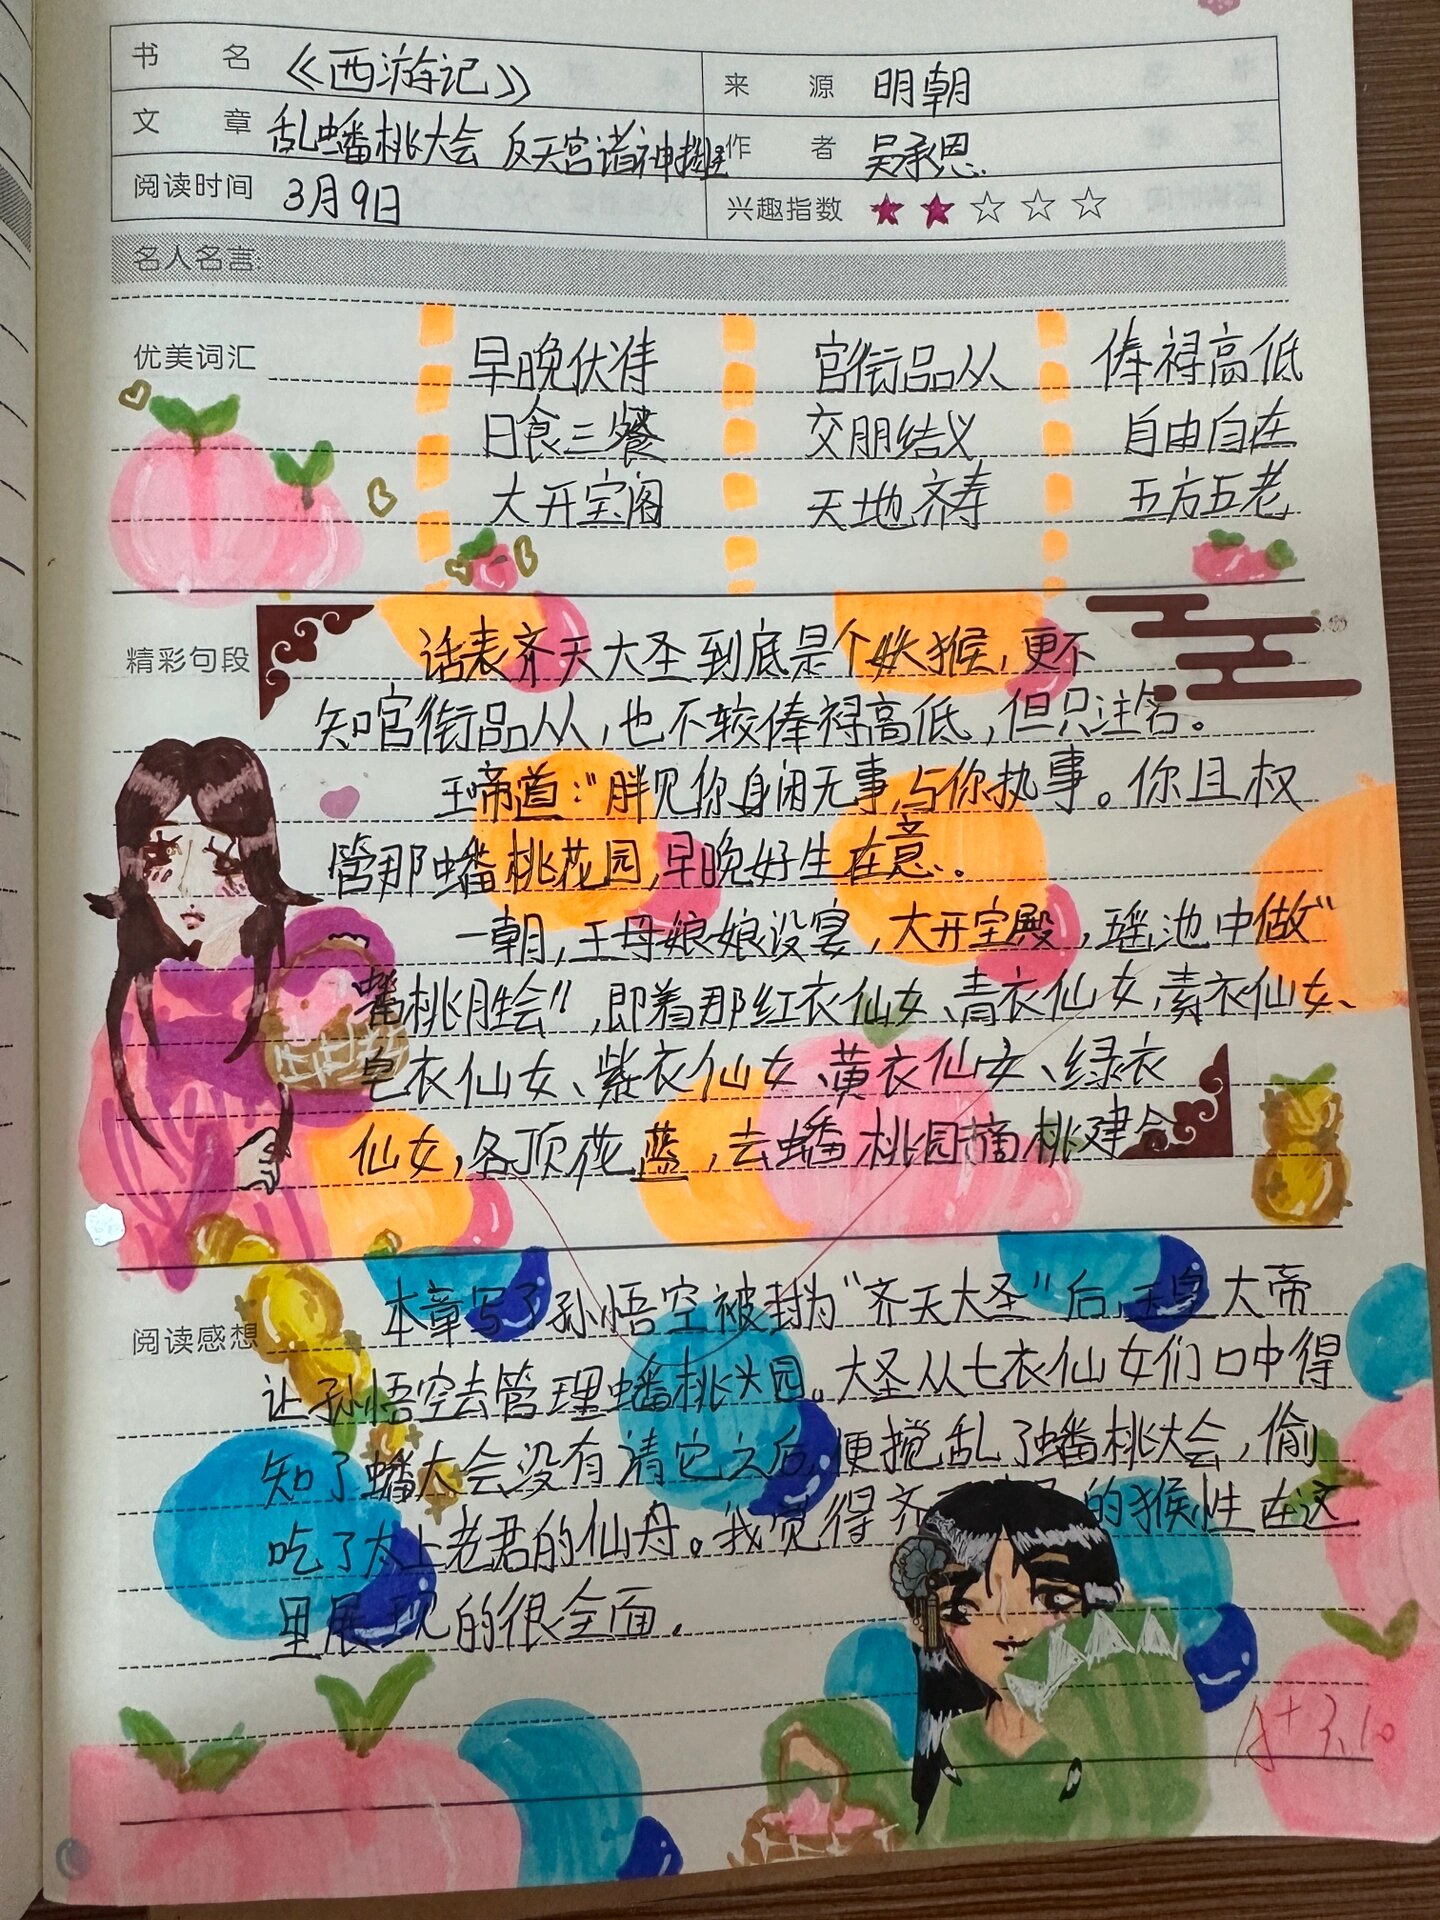 书 名 《西游记》 来 源 明朝
文 章 乱蟠桃大会 反天宫诸神捉 作 者 吴承恩
阅读时间 3月9日 兴趣指数 ★★☆☆☆
名人名言:
优美词汇 早晚伏侍 官衔品从 俸禄高低
日食三餐 交朋结义 自由自在
大开宝阁 天地齐寿 五方五老
精彩句段 话表齐天大圣到底是个妖猴,更不
知官衔品从,也不较俸禄高低,但只注名。
王啼道:"胖见你身闲无事,与你执事。你且权
管那蟠桃花园,早晚好生在意。
一朝,王母娘娘设宴,大开宝殿,瑶池中做"
蟠桃胜会",即着那红衣仙女、青衣仙女、素衣仙女、
皂衣仙女、紫衣仙女、黄衣仙女、绿衣
仙女,各顶花蓝,去蟠桃园摘桃建会
阅读感想 本章写了孙悟空被封为"齐天大圣"后,玉皇大帝
让孙悟空去管理蟠桃园。大圣从七衣仙女们口中得
知了蟠大会没有请它之后,便搅乱了蟠桃大会,偷
吃了太上老君的仙丹。我觉得齐的猴性在这
里展现的很全面.
A+ 3.10